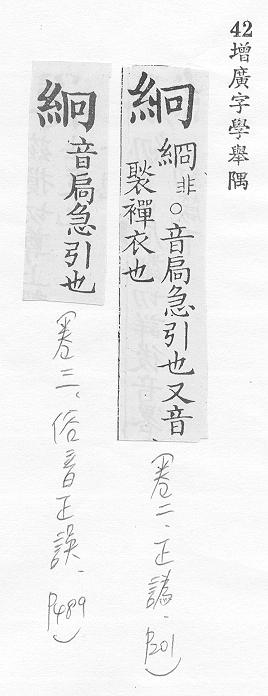 42增廣字學舉隅
絅 綗非○音扃急引也又音
褧襌衣也
(卷二、正譌、P201)
絅 音扃急引也
(卷三、俗音正誤、P489)